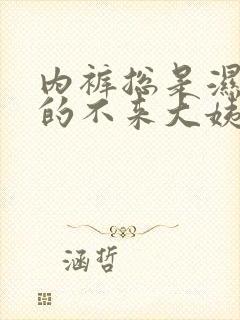 内裤总是湿
的不来大姨
涵哲